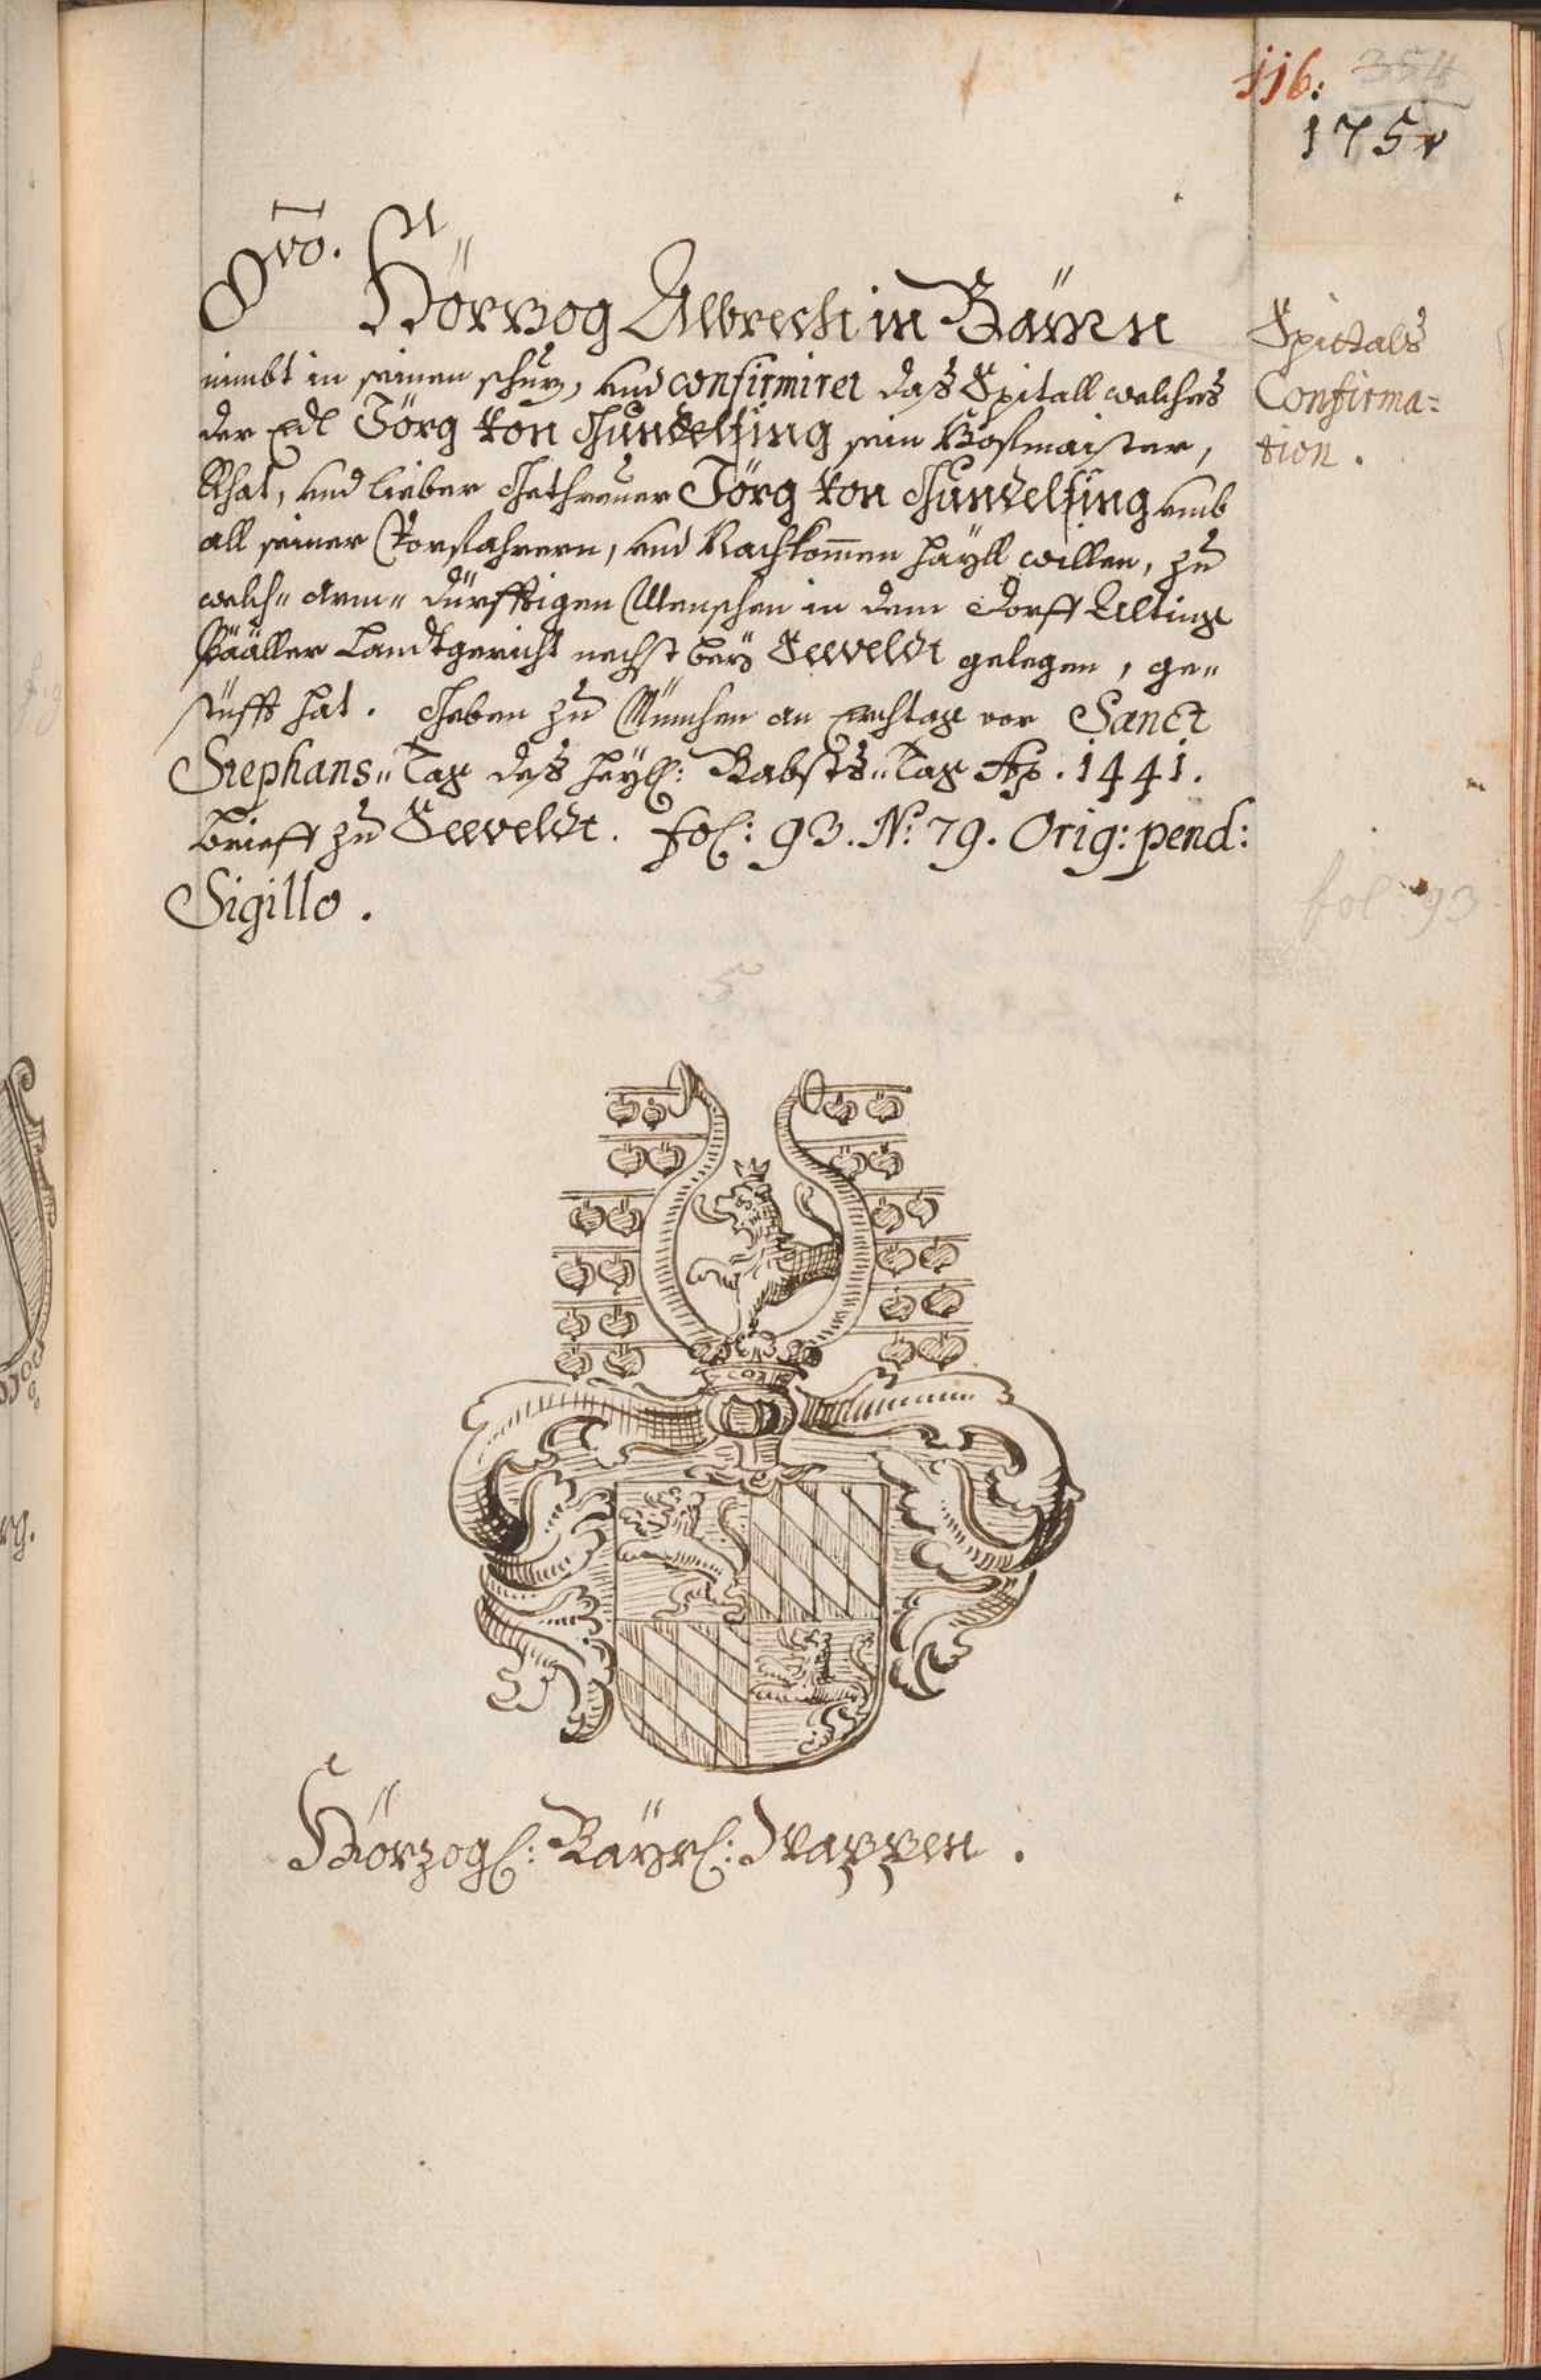 116: 354
175r
8vo. Hörzog Albrecht in Bäyrn
nimbt in seinen schuz, und confirmiret das Spitall welches
der Edl Jörg von Gundelfing sein Hofmaister,
Rhat, und lieber Gethreuer Jörg von Gundelfing umb
all seiner Vorfahrern, und Nachkom̅en hayll willen, zu
welch" arm" dürfftigen Menschen in dem Dorff Ulting
Landtgericht nechst bey Seeveldt gelegen, ge"
stüfft hat. Geben zu München an Erchtag vor Sanct
Stephans" Tag des heyl: Babsts" Tag Ao. 1441.
Brieff zu Seeveldt. fol: 93. No: 79. Orig: pend:
Sigillo.
Spittals
Confirma=
tion.
fol: 93
Hörzogl: Bäyrl: Wappen.